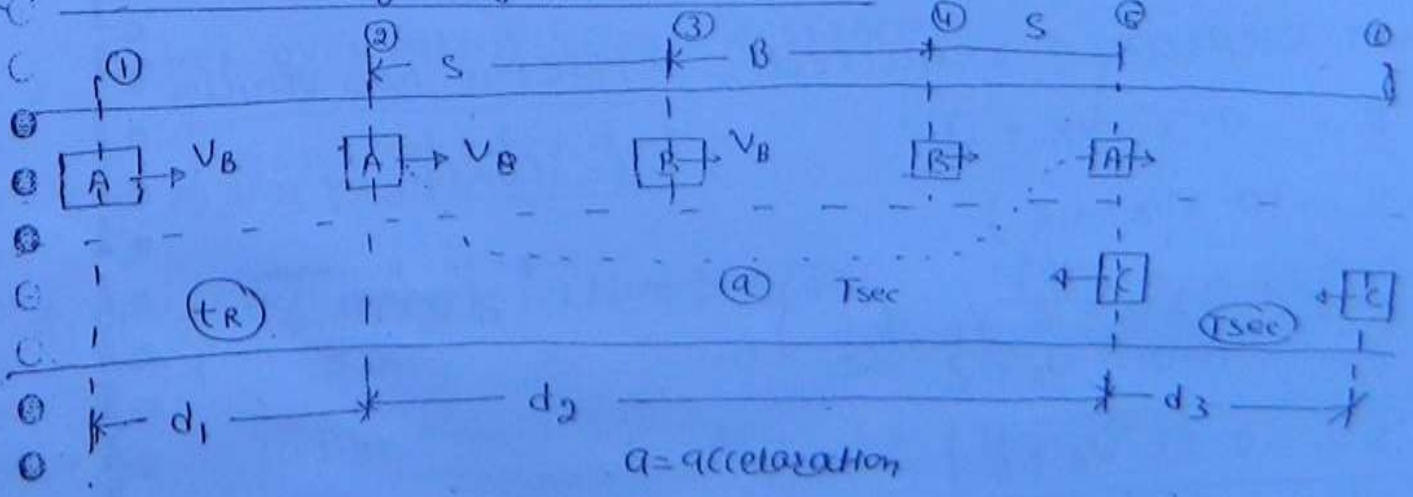 ① ② S ③ B ④ S ⑤ ⑥
A V_B A V_B B V_B B A
C C
t_R a Tsec Tsec
d₁ d₂ d₃
a = accelaration